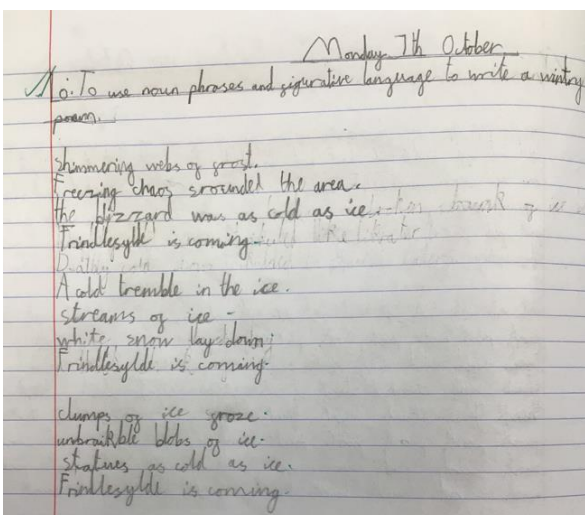 Monday 7th October
Lo: To use noun phrases and figurative language to write a wintry
poem.
shimmering webs of frost.
Freezing chaos srounded the area.
the blizzard was as cold as ice
Frindlesylde is coming.
A cold tremble in the ice.
streams of ice -
white, snow lay down;
Frindlesylde is coming.
clumps of ice froze.
unbraikble blobs of ice.
statues as cold as ice.
Frindlesylde is coming.